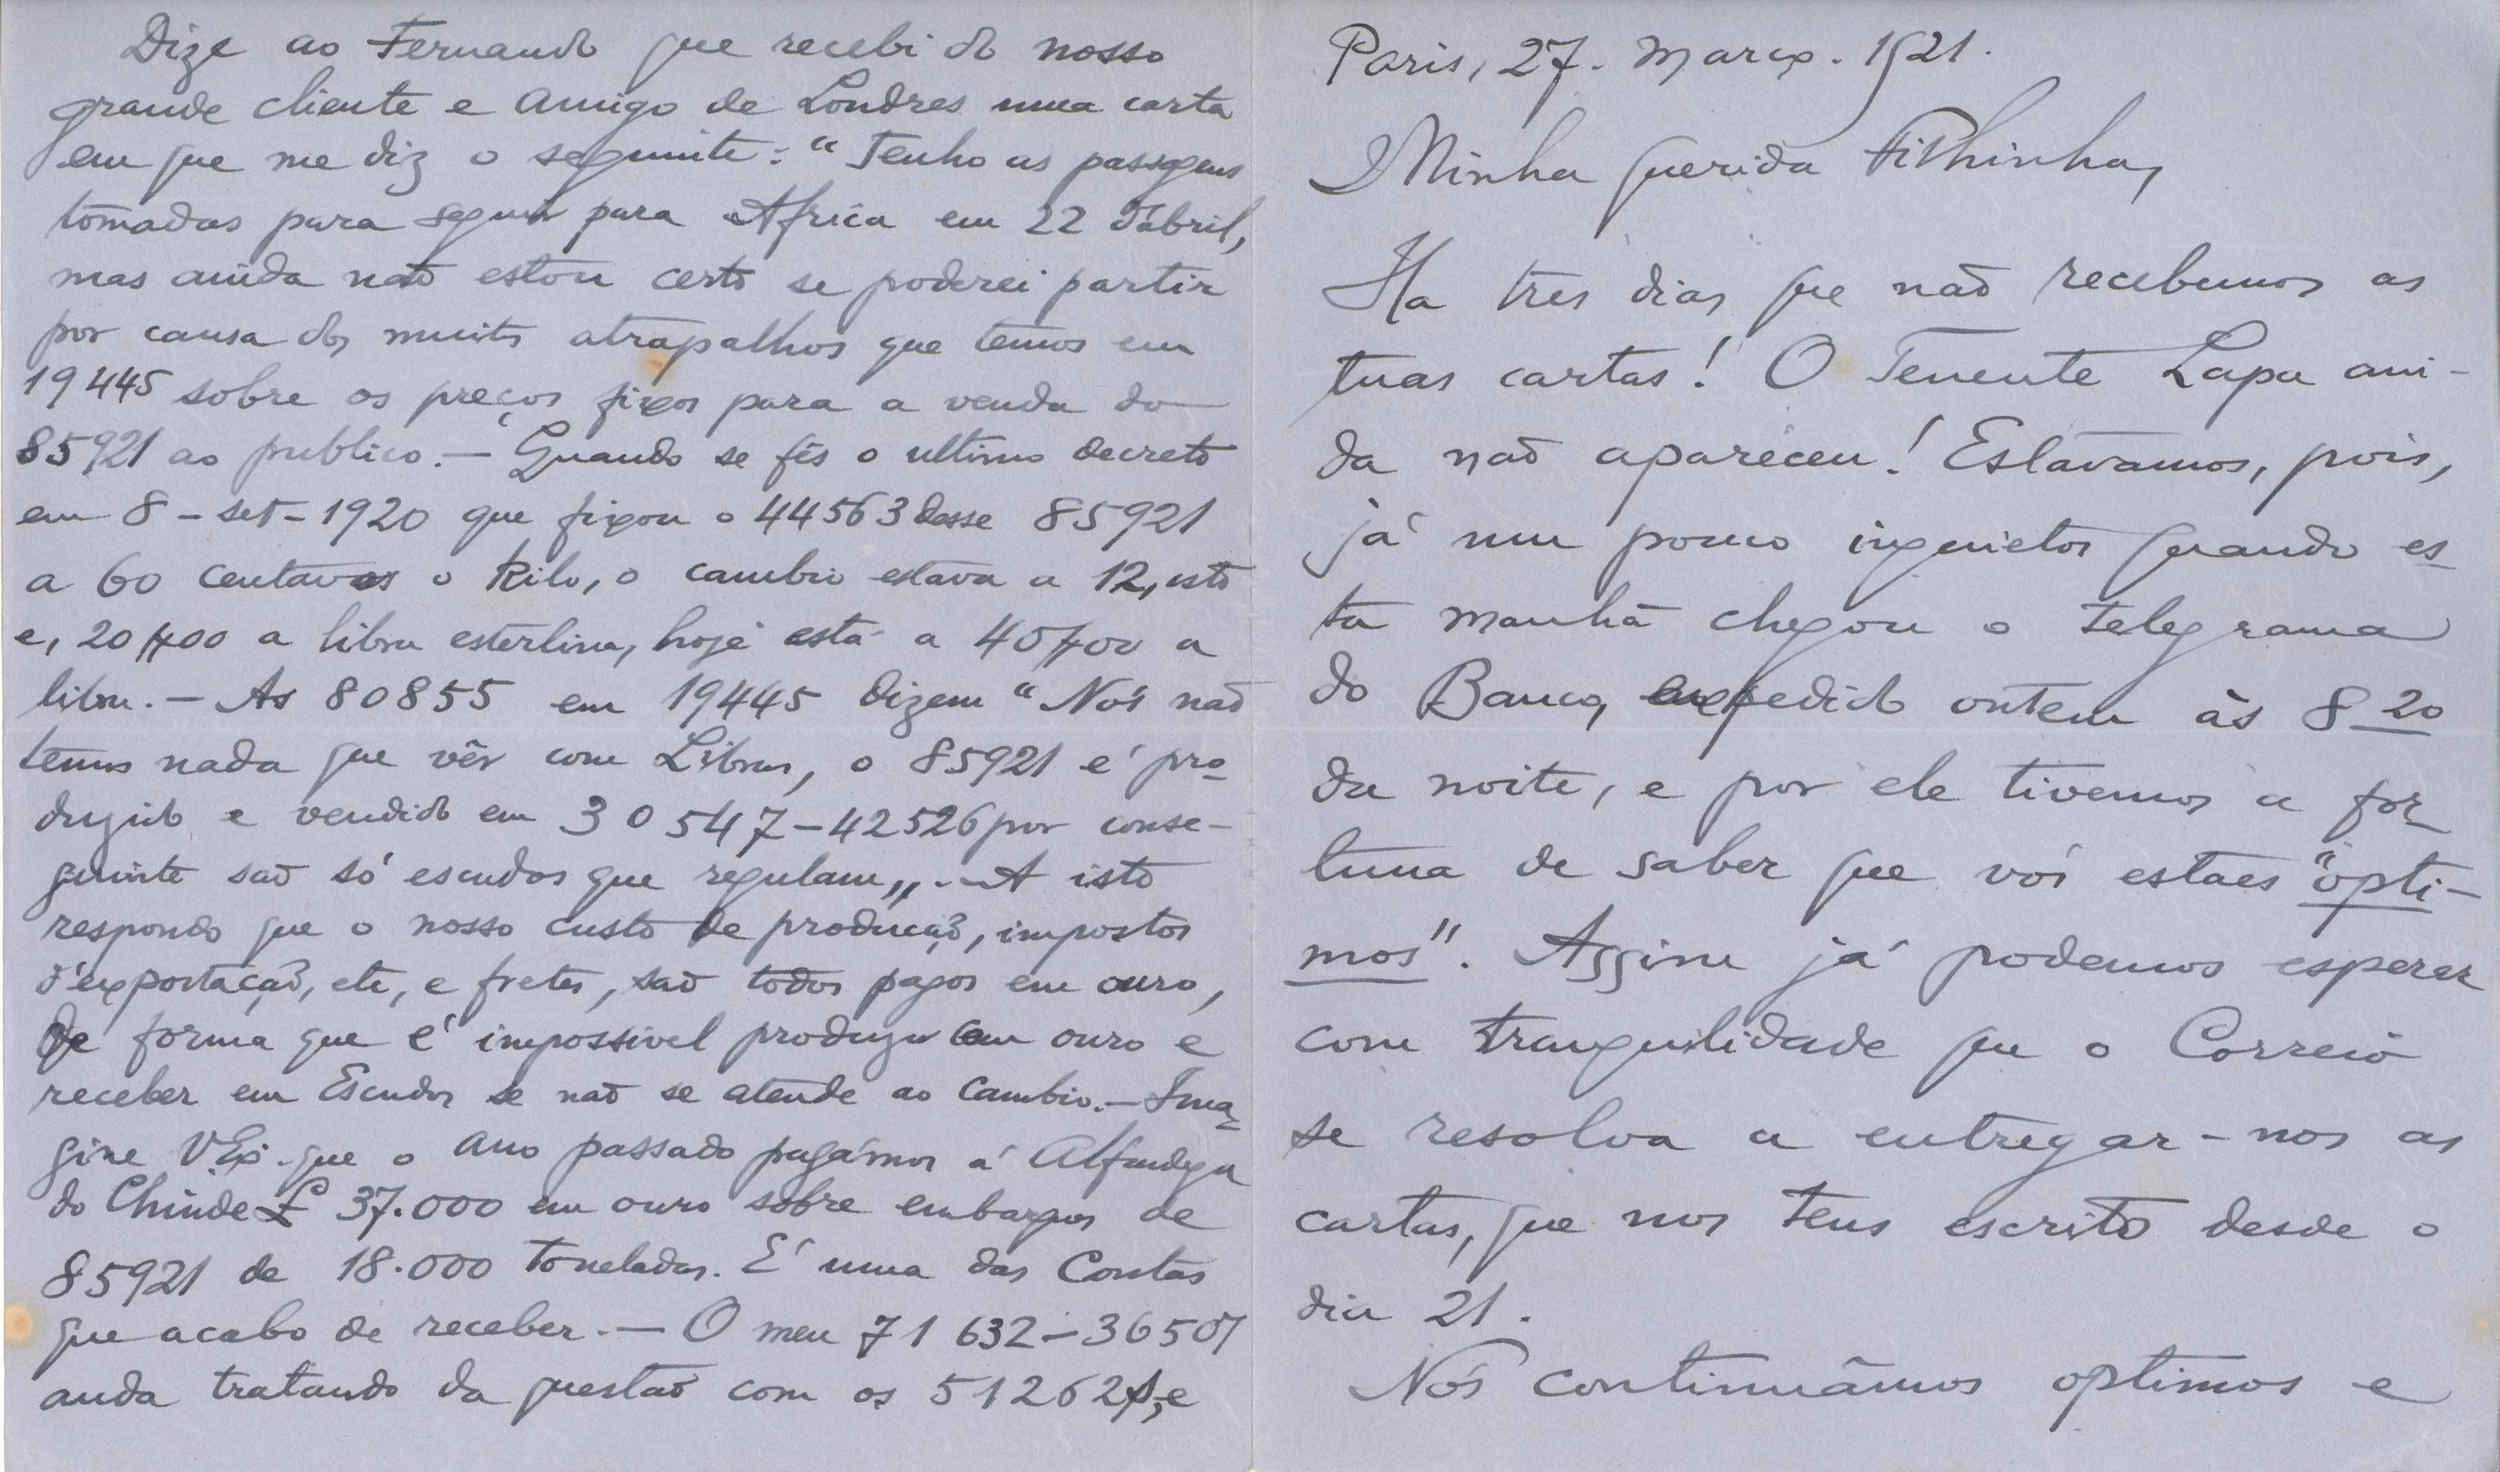 Paris, 27. Março. 1921.
Minha querida Filhinha,
Ha tres dias que não recebemos as
tuas cartas! O Tenente Lapa ain-
da não apareceu! Estavamos, pois,
já um pouco inquietos quando es-
ta manhã chegou o telegrama
do Banco, expedido ontem às 8 20
da noite, e por ele tivemos a for-
tuna de saber que vós estaes "opti-
mos". Assim já podemos esperar
com tranquilidade que o Correio
se resolva a entregar-nos as
cartas, que nos tens escrito desde o
dia 21.
Nós continuâmos optimos e
Dize ao Fernando que recebi do nosso
grande cliente e amigo de Londres uma carta
em que me diz o seguinte: "Tenho as passagens
tomadas para seguir para Africa em 22 d'abril,
mas ainda não estou certo se poderei partir
por causa dos muitos atrapalhos que temos em
19445 sobre os preços fixos para a venda do
85921 ao publico. — Quando se fês o ultimo decreto
em 8-set-1920 que fixou o 44563 desse 85921
a 60 centavos o kilo, o cambio estava a 12, isto
e, 20$00 a libra esterlina, hoje está a 40$00 a
libra. — As 80855 em 19445 dizem "Nós não
temos nada que vêr com Libras, o 85921 é pro-
duzido e vendido em 30547-42526 por conse-
guinte são só escudos que regulam,,. — A isto
respondo que o nosso custo de produção, impostos
d'exportação, etc, e fretes, são todos pagos em ouro,
de forma que é impossivel produzir em ouro e
receber em Escudos se não se atende ao Cambio. — Ima-
gine V. Exª. que o ano passado pagámos á Alfandega
do Chinde £ 37.000 em ouro sobre embarques de
85921 de 18.000 toneladas. É uma das Contas
que acabo de receber. — O meu 71632-36507
anda tratando da questão com os 51262, e